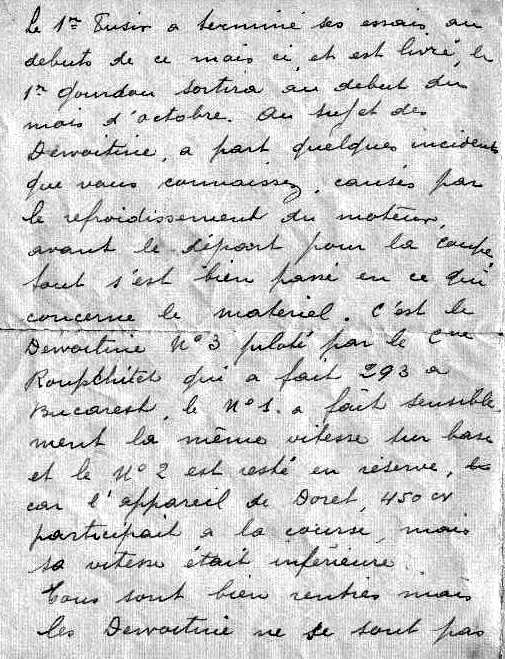 Le 1er Fusir a terminé ses essais au
debuts de ce mois ci, et est livré, le
1er Gourdou sortira au debut du
mois d'octobre. Au sujet des
Dewoitine, a part quelques incidents
que vous connaissez, causés par
le refroidissement du moteur,
avant le départ pour la coupe,
tout s'est bien passé en ce qui
concerne le materiel. C'est le
Dewoitine N°3 piloté par le Cne
qui a fait 293 a
Bucarest, le N°1. a fait sensible
ment la même vitesse sur base
et le N°2 est resté en réserve,
car l'appareil de Doret, 450 cv
participait a la course, mais
sa vitesse était inférieure.
Tous sont bien rentrés mais
les Dewoitine ne se sont pas